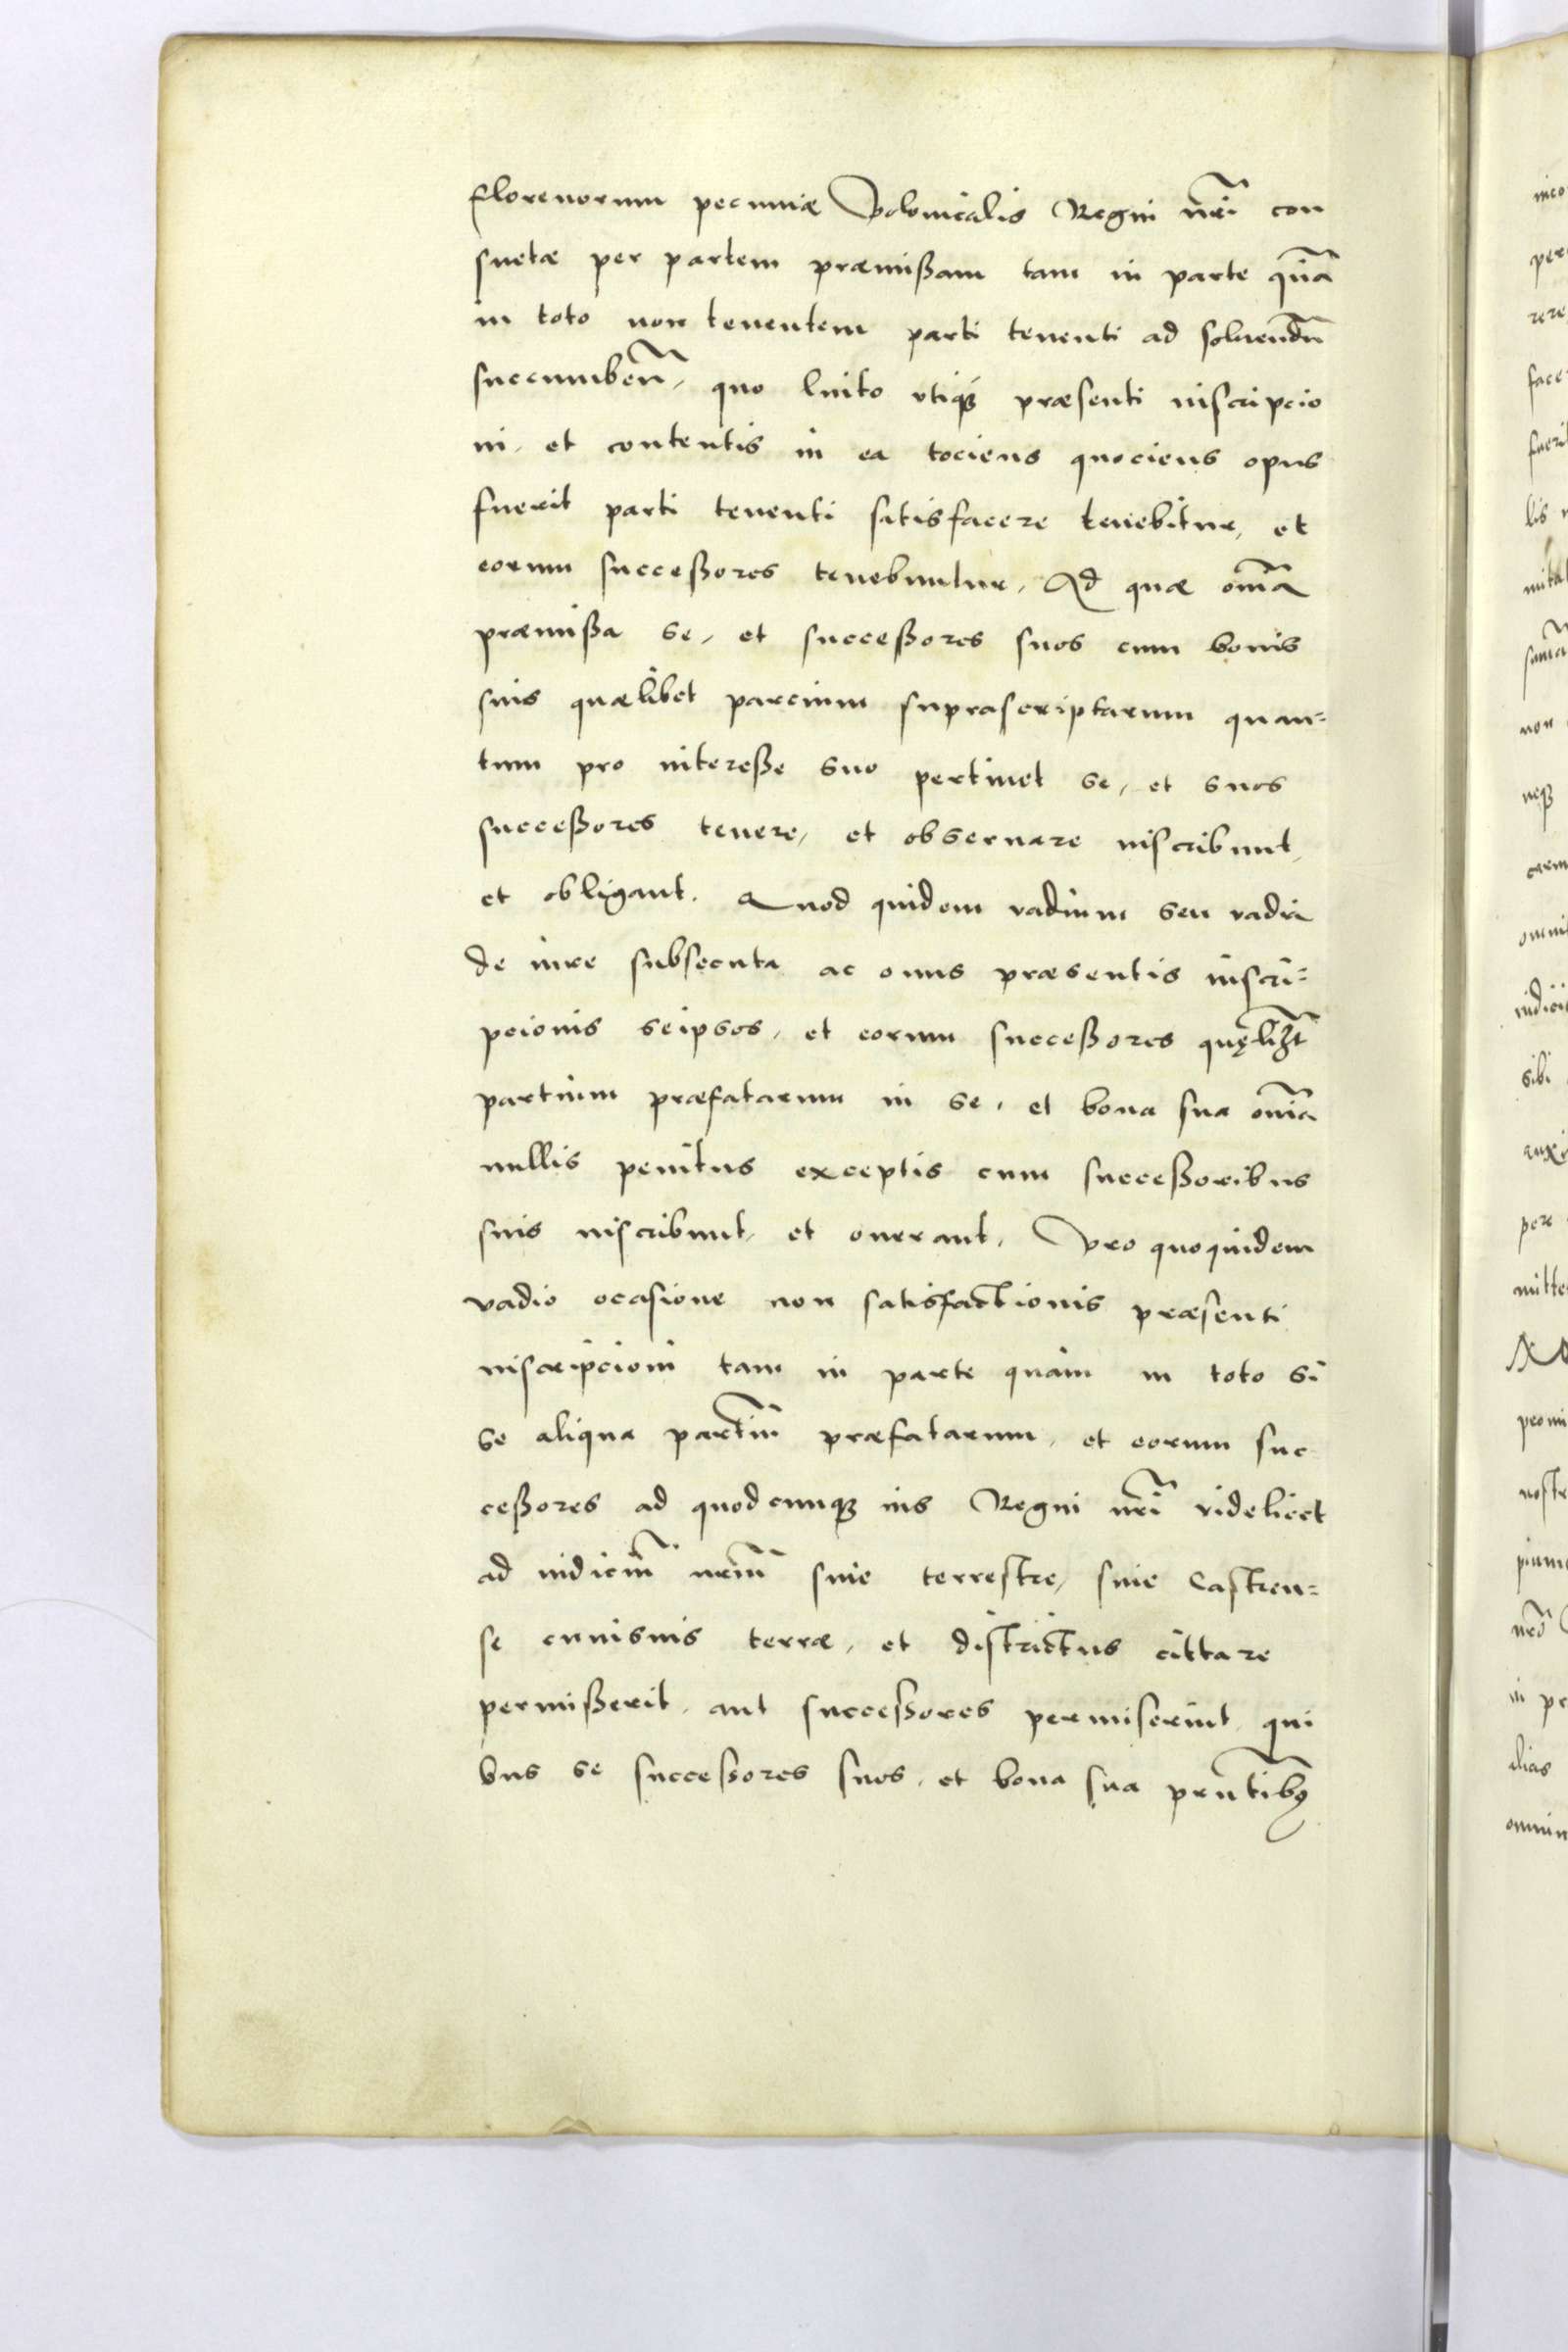 florenorum pecuniæ Polonicalis Regni nr̃i con
suetæ per partem præmißam tam in parte qũa
in toto non tenentem parti tenenti ad soluendũ
succumben̄, quo luito vtiqꝫ præsenti inscripcio
ni, et contentis in ea tociens quociens opus
fuerit parti tenenti satisfacere tenebitur, et
eorum succeßores tenebuntur, Ad quæ om̃a
præmißa se, et succeßores suos cum bonis
suis quælibet parcium suprascriptarum quan=
tum pro intereße suo pertinet se, et suos
succeßores tenere, et obseruare inscribunt,
et obligant. Quod quidem vadium seu vadia
de iure subsecuta ac onus præsentis inscri=
pcionis seipsos, et eorum succeßores quęlib̃t
partium præfatarum in se, et bona sua om̃ia
nullis penitus exceptis cum succeßoribus
suis inscribunt, et onerant, Pro quoquidem
vadio ocasione non satisfactionis præsenti
inscripcioni tam in parte quàm in toto si
se aliqua partiũ præfatarum, et eorum suc
ceßores ad quodcunqꝫ ius Regni nr̃i videlicet
ad iudiciũ nr̃um siue terrestre, siue Castren=
se cuiusuis terræ, et districtus cittare
permißerit, aut succeßores permiserint, qui
bus se succeßores suos, et bona sua pñtibꝫ